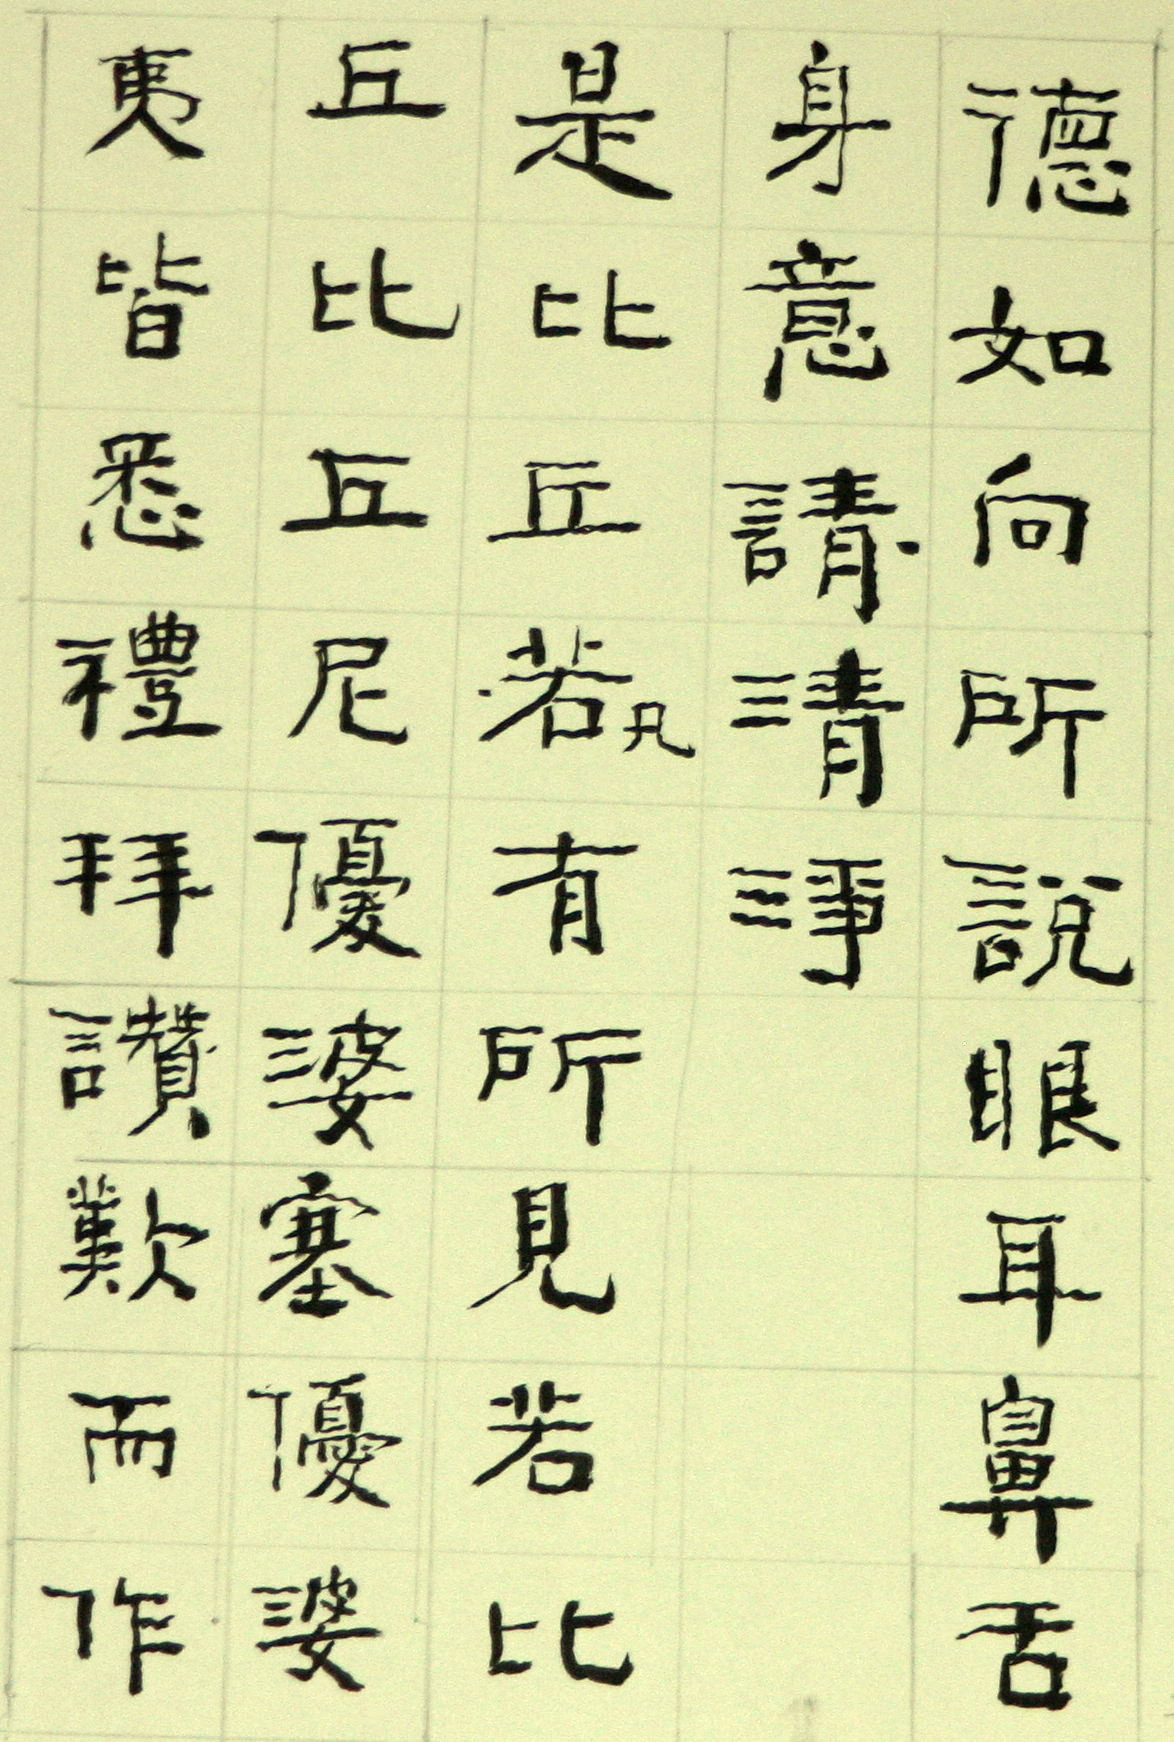 德如向所說眼耳鼻舌
身意請清淨
是比丘若凡有所見若比
丘比丘尼優婆塞優婆
夷皆悉禮拜讚歎而作